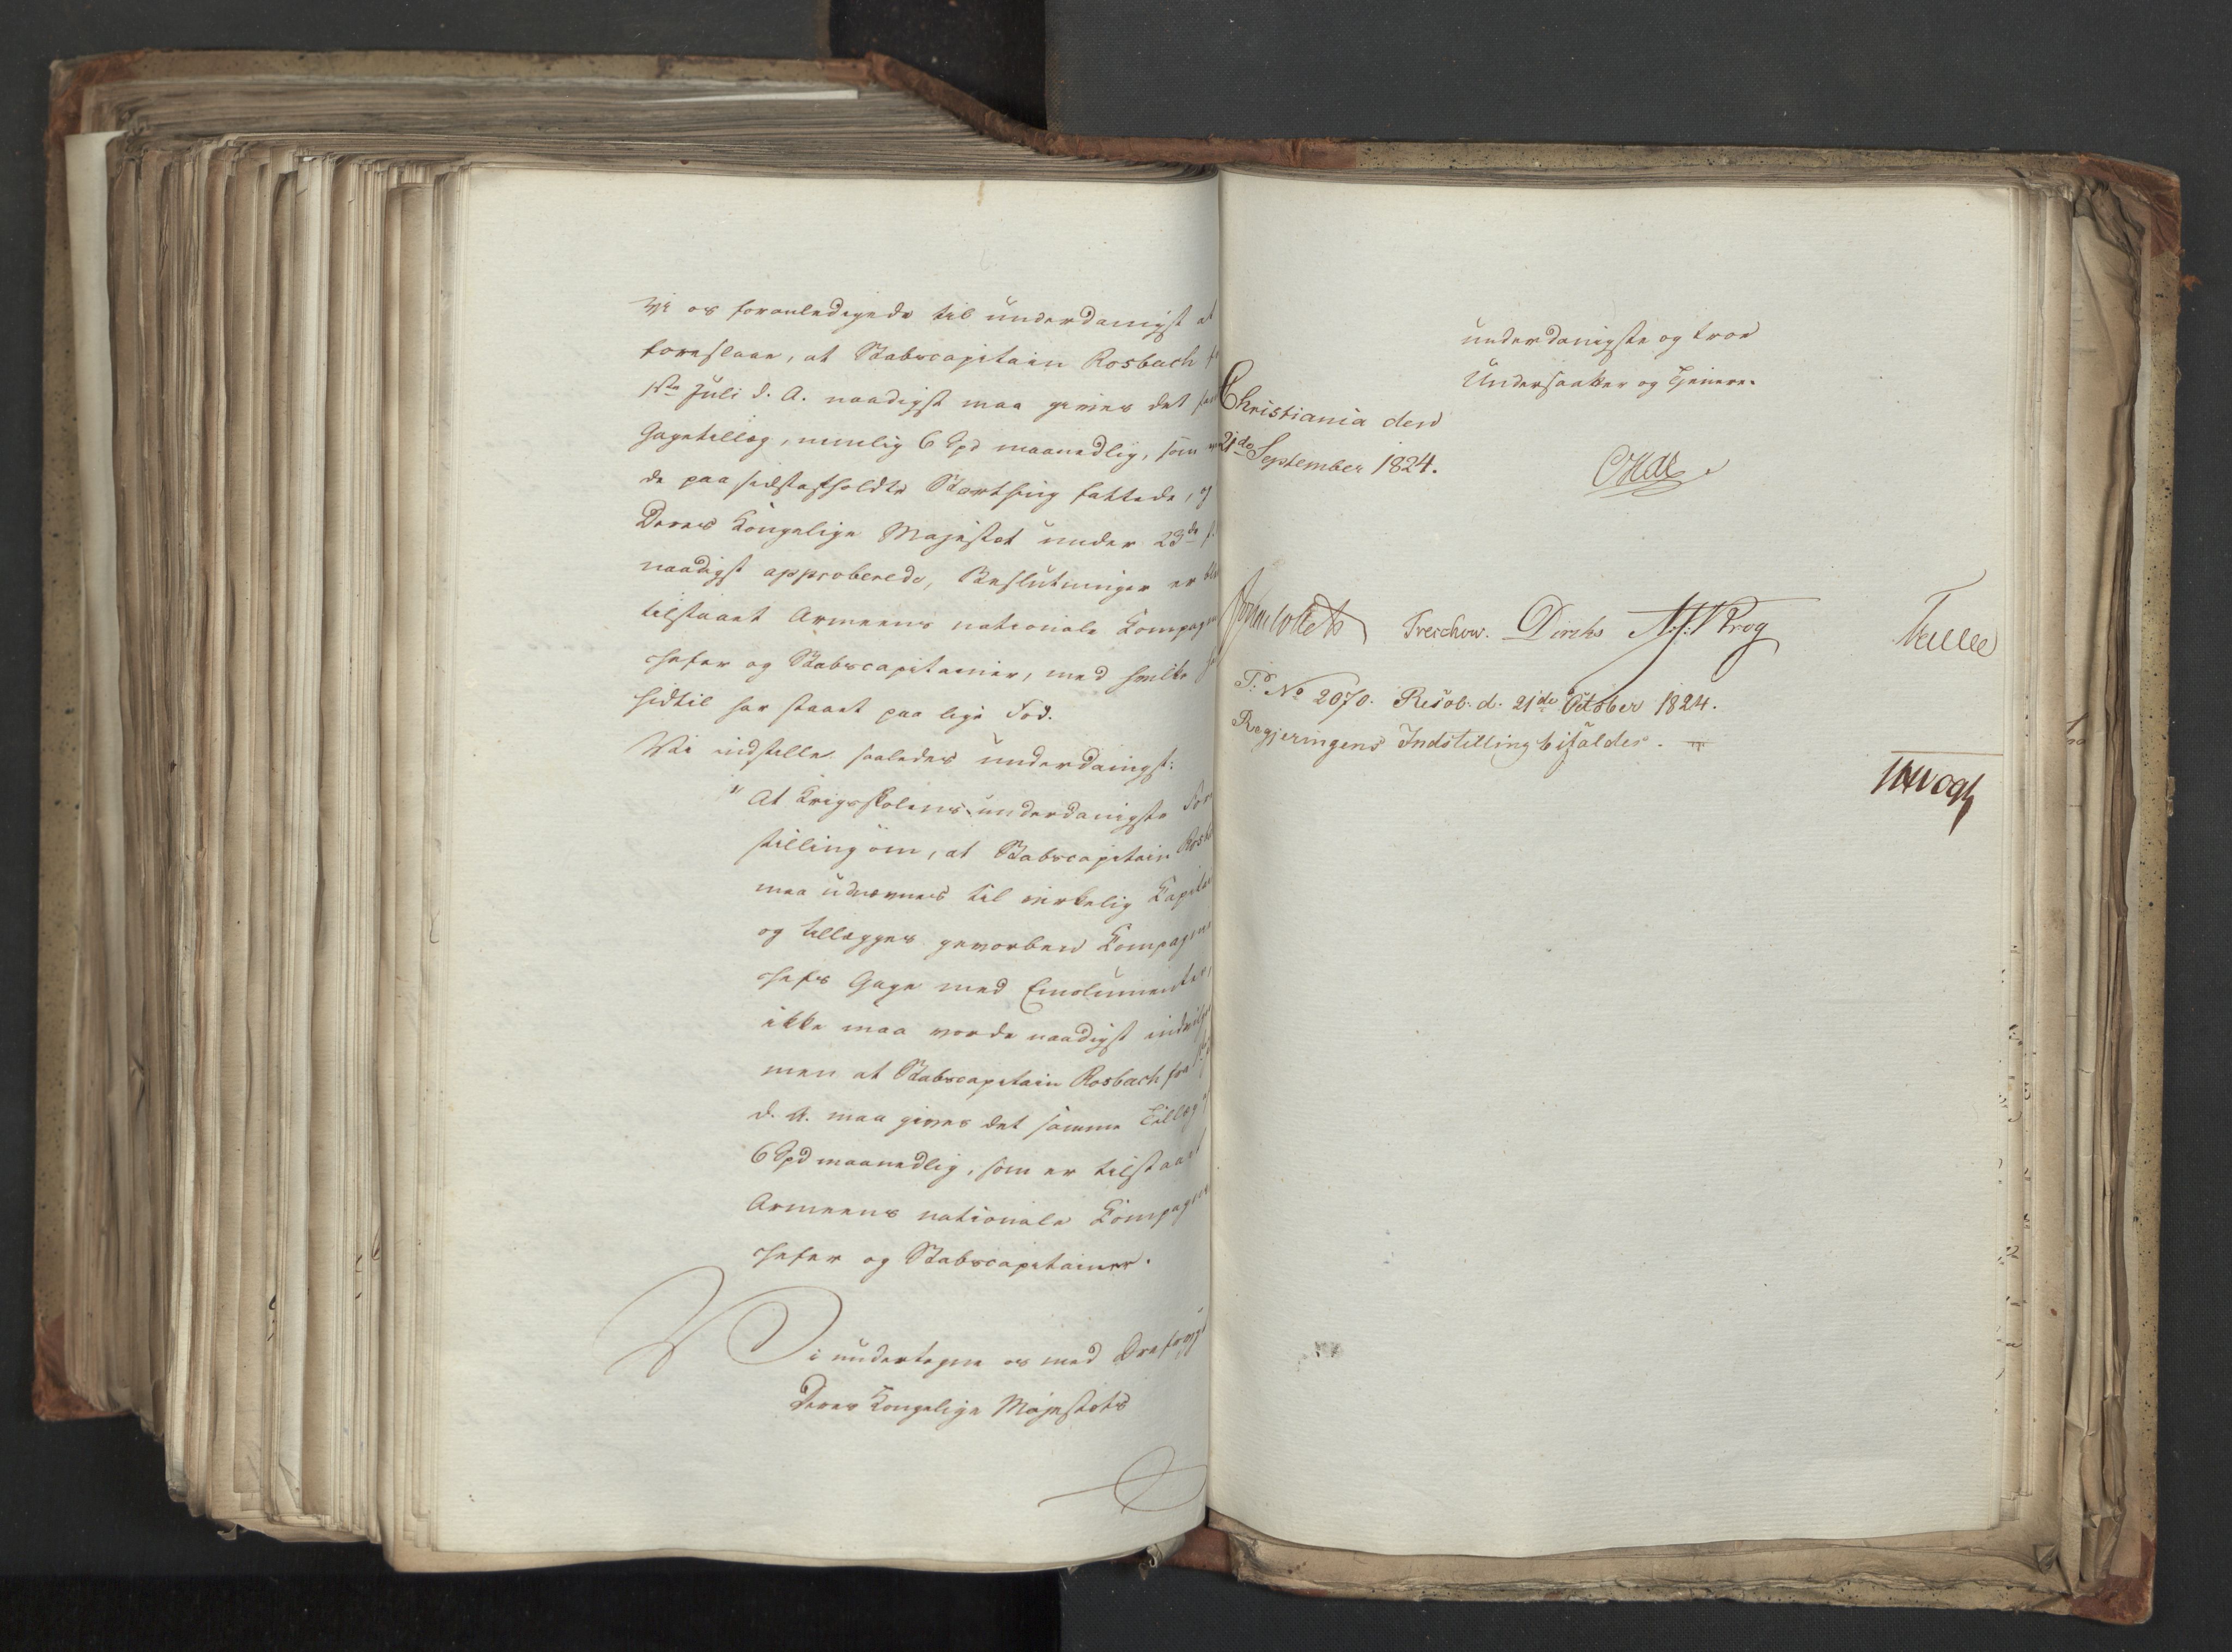 vi os foranledigede til underdanigst at
foreslaae, at Stabscapitain Rosbach
1ste Juli d. A. naadigst maa gives det
Gagetillæg, nemlig 6 Spd maanedlig, som
de paa sidstafholdte Storthing fattede, og
Deres Kongelige Majestæt under 23de
naadigst approberede, Beslutninger er
tilstaaet Armeens nationale Compagnie
chefer og Stabscapitainer, med hvilke
hidtil har staaet paa lige Fod.
Vi indstille saaledes underdanigst:
At Krigsskolens underdanigste For
stilling om, at Stabscapitain Rosb
maa udnævnes til virkelig Capitai
og tillægges gevorben Compagnie
chefs Gage med Emolumenter,
ikke maa vorde naadigst indvilget
men at Stabscapitain Rosbach fra
d. A. maa gives det samme Tillæg af
6 Spd maanedlig, som er tilstaaet
Armeens nationale Compagnie
chefer og Stabscapitainer.
Vi undertegne os med Dybeste
Deres Kongelige Majestæts
underdanigste og troe
Undersaatter og Tjenere.
Christiania den
21de September 1824.
Jonas Collett Treschow. Diriks Krog
P: No 2070. Resol: d. 21de October 1824.
Regjeringens Indstilling bifaldes.